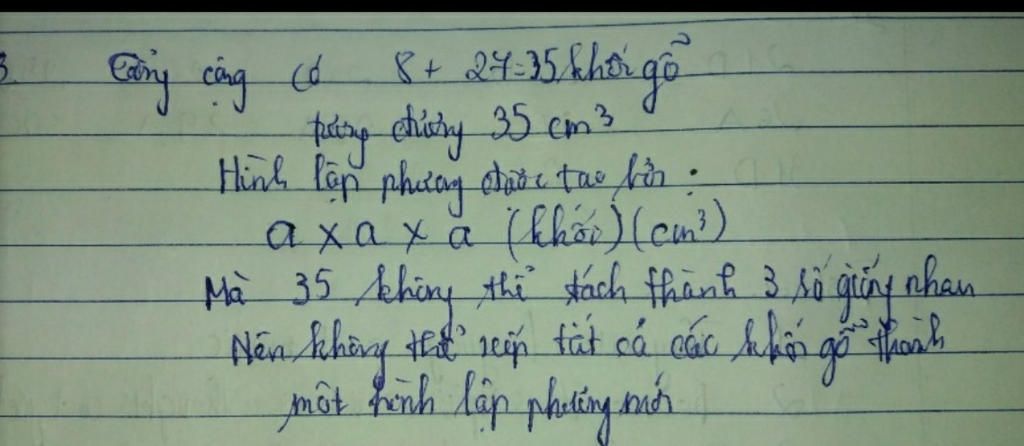 3. Tổng cộng có 8 + 27 = 35 khối gỗ
tương đương 35 cm³
Hình lập phương được tạo bởi :
a x a x a (khối) (cm³)
Mà 35 không thể tách thành 3 số giống nhau
Nên không thể xếp tất cả các khối gỗ thành
một hình lập phương mới